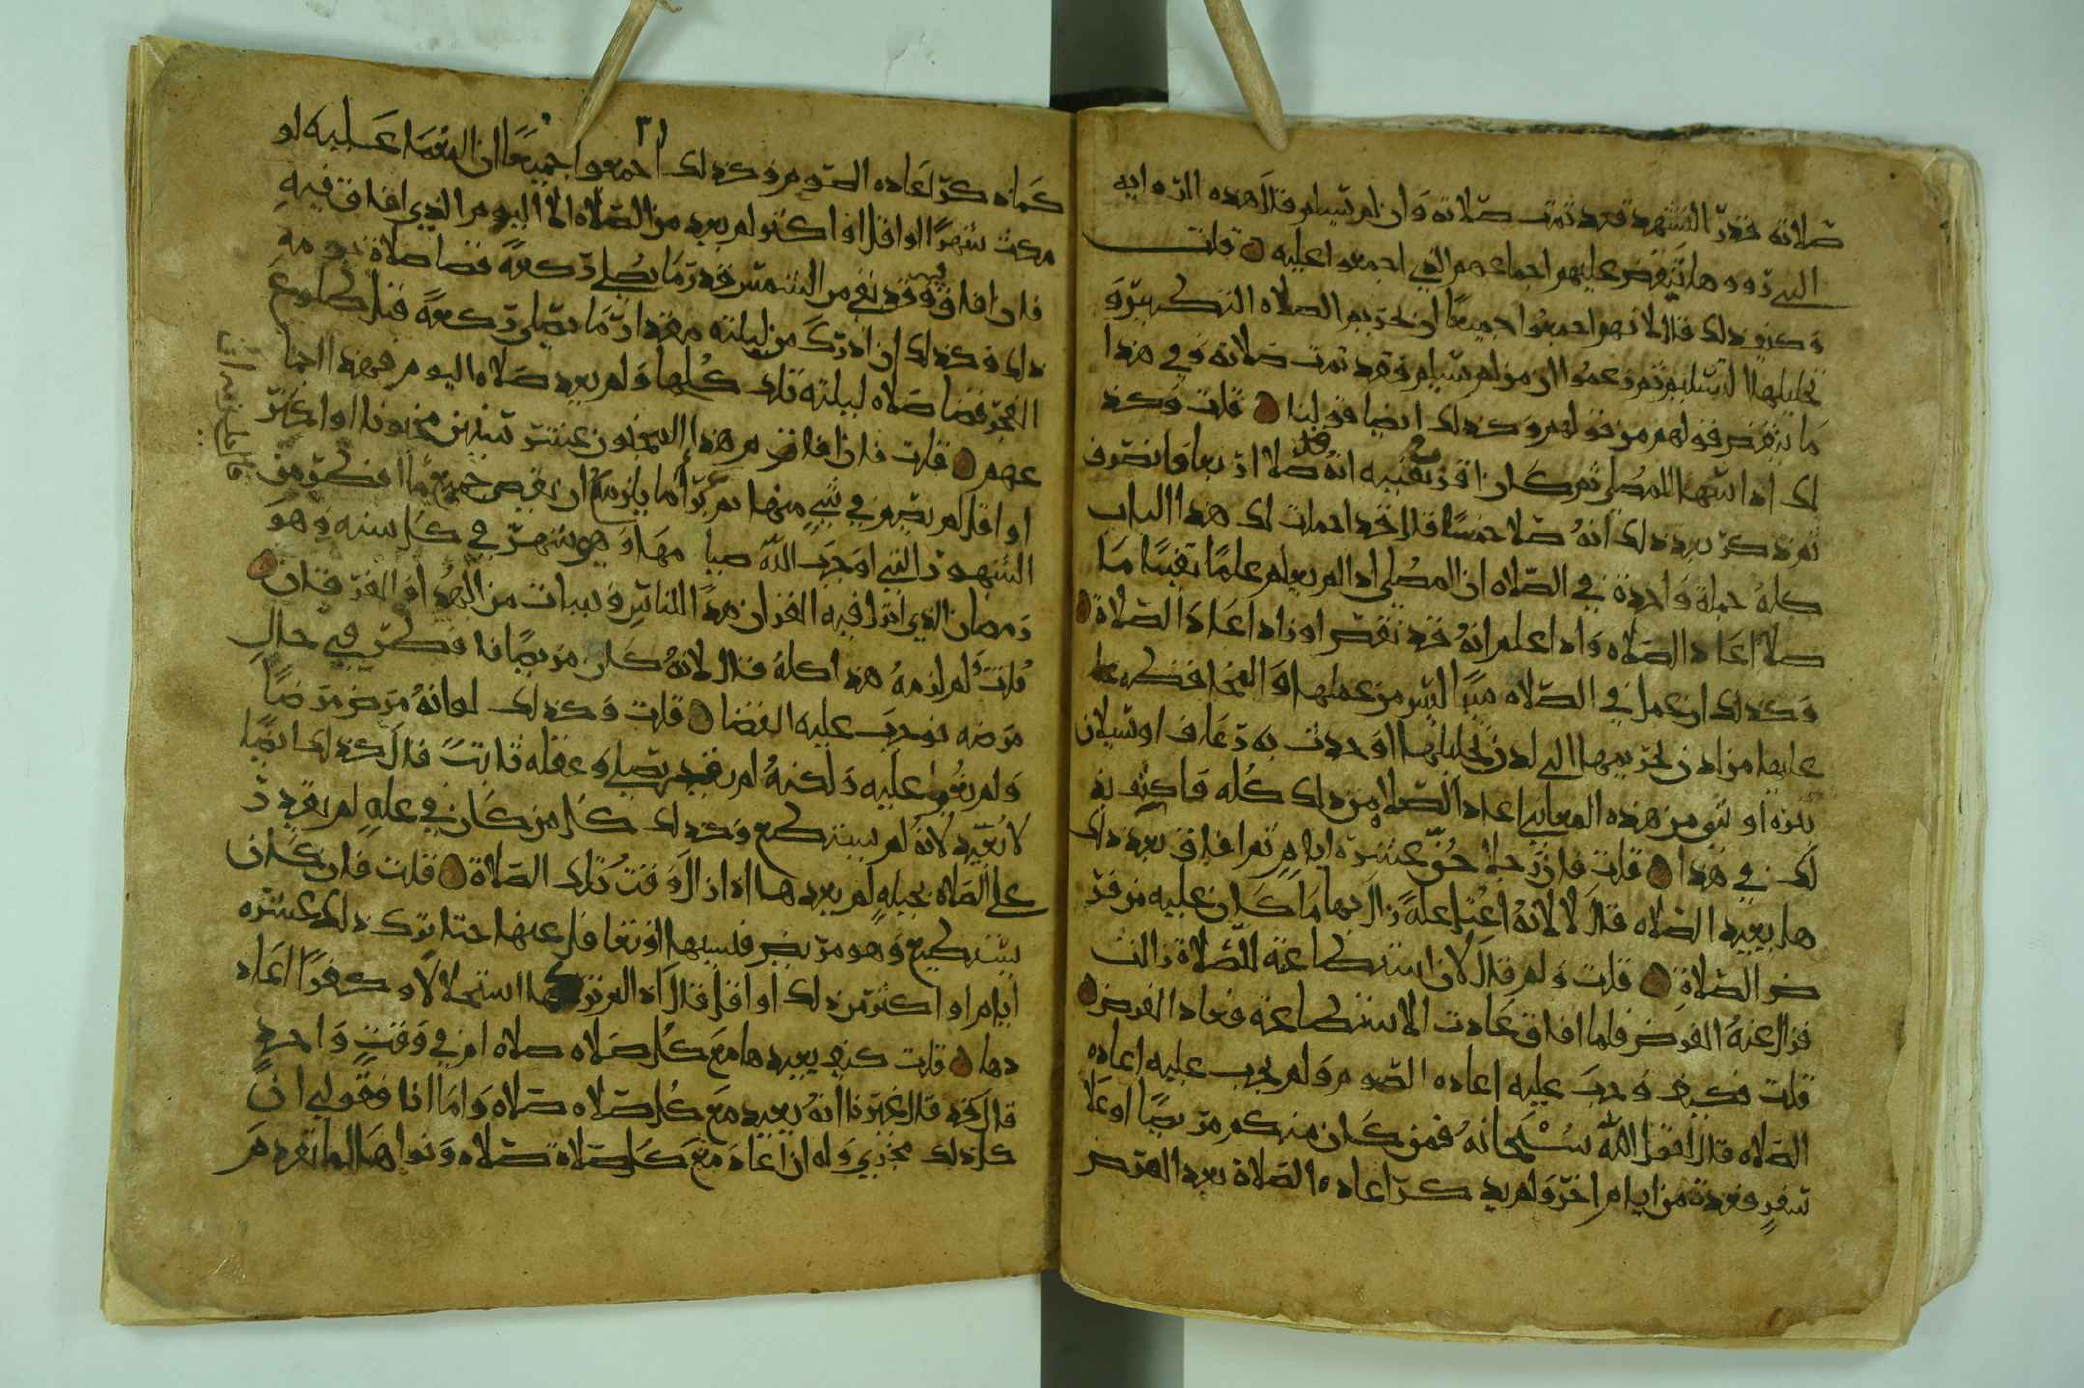 صلاته قدر التشهد فقد تمت صلاته وان لم يسلم قال هذه الروايه
التي رووها تنقض عليهم اجماعهم الذي اجمعوا عليه قلت
وكيف ذلك قال لانهم اجمعوا جميعا ان تحريم الصلاه التكبير و
تحليلها التسليم ثم زعموا ان من لم يسلم فقد تمت صلاته وفي هذا
ما ينقض قولهم من قولهم وكذلك ايضا قولنا قلت وكذ
لك اذا سها المصلي ثم كان اقرب يقينه انه قد صلا اربعا وانصرف
ثم ذكر بعد ذلك انه صلا خمسا قال قد اجملت لك هذا الباب
كله جملة واحدة في الصلاه ان المصلي اذا لم يعلم علما يقينا ما
صلا اعاد الصلاه واذا علم انه قد نقص او زاد اعاد الصلاة
وكذلك ان عمل في الصلاه شيا ليس من عملها او التجا فكره عما
عليها من لدن تحريمها الى لدن تحليلها او حدث به رعاف او سيلان
بعره او شي من هذه المعاني اعاد الصلاه من ذلك كله فاكتف بذ
لك في هذا قلت فان رجلا جن عشرة ايام ثم افاق بعد ذلك
هل يعيد الصلاه قال لا لانه اعتل علة زال بها ما كان عليه من فر
ض الصلاة قلت ولم قال لان استطاعته للصلاة زالت
فزال عنه الفرض فلما افاق عادت الاستطاعة فعاد الفرض
قلت فكيف وجب عليه اعاده الصوم ولم تجب عليه اعاده
الصلاه قال لقول الله سبحانه فمن كان منكم مريضا او على
سفر فعدة من ايام اخر ولم يذكر اعاده الصلاة بعد المرض
٣١
كما ذكر اعاده الصوم وكذلك اجمعوا جميعا ان المغما عليه لو
مكث شهرا او اقل او اكثر لم يعد من الصلاه الا اليوم الذي افاق فيه
فان افاق وقد بقي من الشمس قدر ما يصلي ركعة قضا صلاة يومه
ذلك وكذلك ان ادرك من ليلته مقدار ما يصلي ركعة قبل طلوع
الفجر قضا صلاه ليلته تلك كلها ولم يعد صلاه اليوم فهذا اجما
عهم قلت فان افاق من هذا المجنون عشر سنين مجنونا او اكثر
او اقل لم يصم في شي منها ثم برا ما يلزمه ان يقضي جميع ما افطر من
الشهور التي اوجب الله صيا مها وهو شهر في كل سنه وهو
رمضان الذي انزل فيه القران هدا للناس وبينات من الهدا والفرقان
قلت ولم لزمه هذا كله قال لانه كان مريضا فافطر في حال
مرضه فوجب عليه القضا قلت وكذلك لو انه مرض مرضا
ولم يغما عليه ولكنه لم يقدر يصلي وعقله ثابت قال كذلك ايضا
لا يعيد لانه لم يستطع وكذلك كل من كان في عله لم يقدر
على الصلاه بحيله لم يعدها اذا زال وقت تلك الصلاة قلت فان كان
يستطيع وهو مريض فنسيها او تغافل عنها حتا ترك ذلك عشره
ايام او اكثر من ذلك او اقل قال اذا لم يتركها استحلالا و كفرا اعاد
دها قلت كيف يعيدها مع كل صلاه صلاه ام في وقت واحد
قال قد قال غيرنا انه يعيد مع كل صلاه صلاه واما انا فقولي ان
كل ذلك مجزي وله ان اعاد مع كل صلاة صلاه ونواها لما تقدم